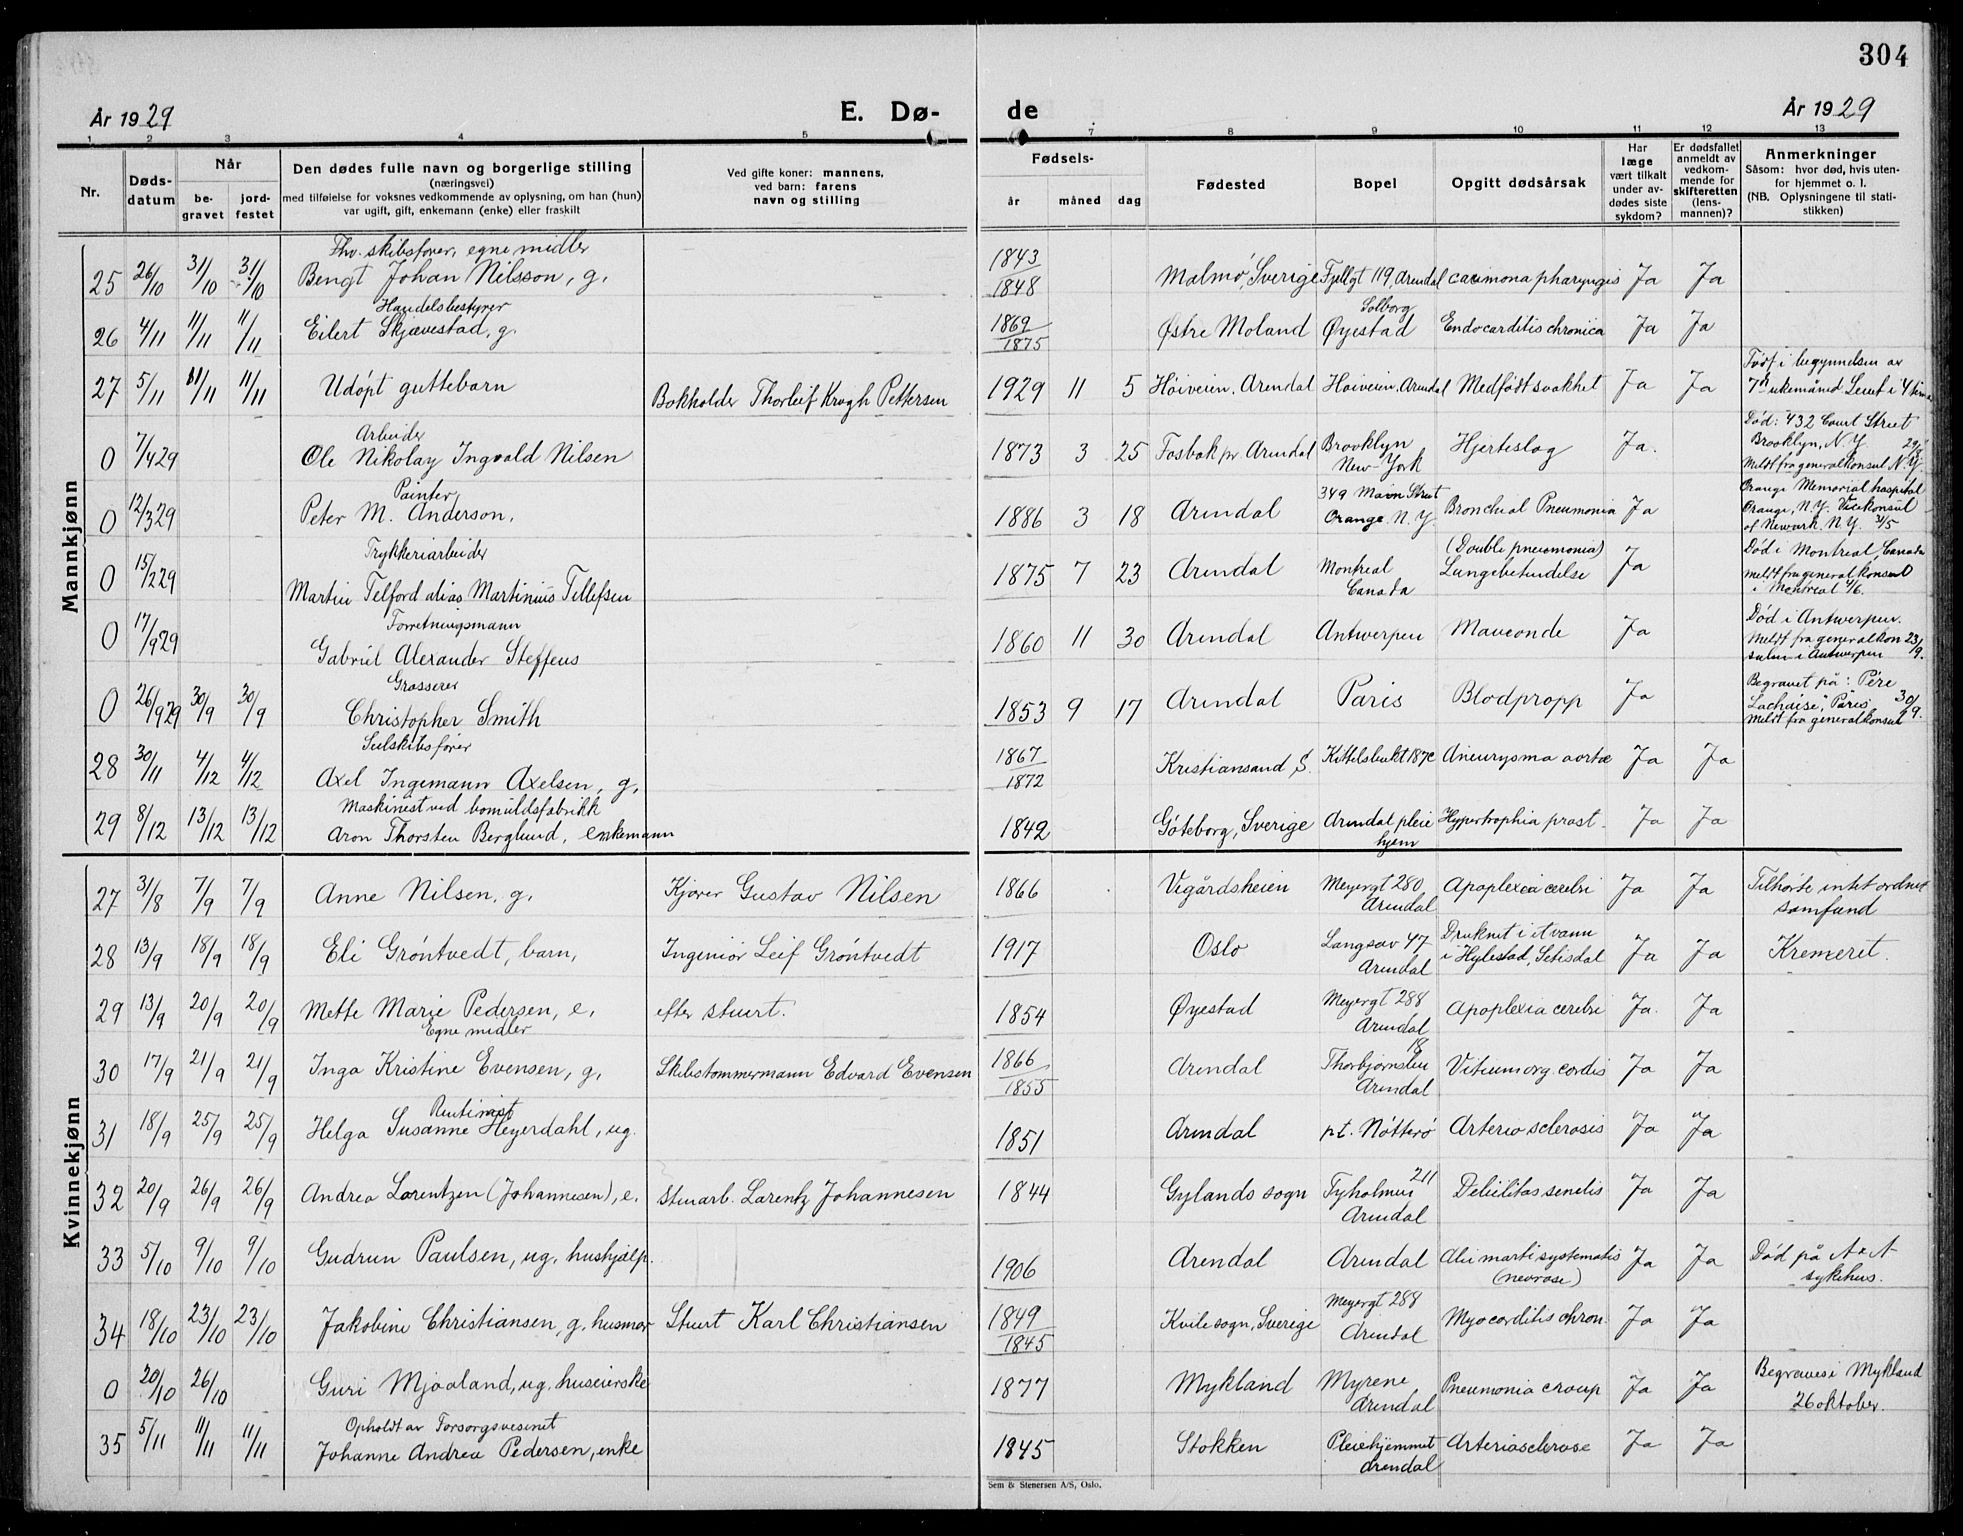 304
År 1929 E. Dø- de År 1929
1 2 3 4 5 7 8 9 10 11 12 13
Nr.
Døds-
datum
Når
be-
gravet
jord-
festet
Den dødes fulle navn og borgerlige stilling
(næringsvei)
med tilføielse for voksnes vedkommende av oplysning, om han (hun)
var ugift, gift, enkemann (enke) eller fraskilt
Ved gifte koner: mannens,
ved barn: farens
navn og stilling
Fødsels-
år måned dag
Fødested
Bopel
Opgitt dødsårsak
Har
læge
vært tilkalt
under av-
dødes siste
sykdom?
Er dødsfallet
anmeldt av
vedkom-
mende for
skifteretten
(lens-
mannen)?
Anmerkninger
Såsom: hvor død, hvis uten-
for hjemmet o. l.
(NB. Oplysningene til stati-
stikken)
Mannkjønn
Fhv. skibsfører, egne midler
25 26/10 31/10 31/10 Bengt Johan Nilsson, g. 1843/1848 Malmö, Sverige Fjellgt 119, Arendal pharyngis Ja Ja
Handelsbestyrer
26 4/11 11/11 11/11 Eilert Skjævestad, g. 1869/1875 Østre Moland Solborg Øyestad Endocarditis chronica Ja Ja
27 5/11 11/11 11/11 Udöpt guttebarn Bokholder Thorleif Krogh Pettersen 1929 11 5 Höiveien, Arendal Höiveien, Arendal Medfödt svakhet Ja Ja Födt i begynnelsen av
7de ukemåned Levet i 4 timer
Arbeider
0 7/4 29 Ole Nikolay Ingvald Nilsen 1873 3 25 Fosbæk pr Arendal Brooklyn New-York Hjerteslag Ja. Död: 432 Court Street
Brooklyn, N.Y.
Meldt fra generalkonsul N.Y.
Painter
0 12/3 29 Peter M. Anderson. 1886 3 18 Arendal 349 Main Street Orange. N.Y. Bronchial Pneumonia Ja Orange Memorial hospital
Orange, N.Y. Visekonsul
of Newark. N.Y. 31/5
Trykkeriarbeider
0 15/2 29 Martin Telford alias Martinius Tellefsen 1875 7 23 Arendal Montreal Canada (Double pneumonia) Lungebetendelse Ja Död i Montreal, Canada
meldt fra generalkonsul
i Montreal 4/6.
Forretningsmann
0 17/9 29 Gabriel Alexander Steffens 1860 11 30 Arendal Antwerpen Ja Död i Antwerpen.
Meldt fra generalkon 23/9.
sulen i Antwerpen
Grosserer
0 26/9 29 30/9 30/9 Christopher Smith 1853 9 17 Arendal Paris Blodpropp Ja Begravet på: Père
Lachaise, Paris
Meldt fra generalkonsul 30/9.
Seilskibsfører
28 30/11 4/12 4/12 Axel Ingemann Axelsen, g. 1867/1872 Kristiansand S. Kittelsbukt 187c Aneurysma aortae Ja Ja
Maskinist ved bomuldsfabrikk
29 8/12 13/12 13/12 Aron Thorsten Berglund, enkemann 1842 Göteborg, Sverige Arendal pleiehjem Hypertrophia prost. Ja Ja
Kvinnekjønn
27 31/8 7/9 7/9 Anne Nilsen, g. Kjører Gustav Nilsen 1866 Vigårdsheien Meyergt 280 Arendal Apoplexia cerebri Ja Ja Tilhørte intet ordnet
samfund
28 13/9 18/9 18/9 Eli Gröntvedt, barn, Ingeniör Leif Gröntvedt 1917 Oslo Langsæv 47 Arendal Druknet i et vann
i Hylestad, Setisdal Ja Ja Kremeret.
29 13/9 20/9 20/9 Mette Marie Pedersen, e. efter stuert. 1854 Øyestad Meyergt 288 Arendal Apoplexia cerebri Ja. Ja
Egne midler
30 17/9 21/9 21/9 Inga Kristine Evensen, g. Skibstømmermann Edvard Evensen 1866/1855 Arendal Thorbjørnsbu 18 Arendal Vitium org. cordis Ja Ja
Rentenist
31 18/9 25/9 25/9 Helga Susanne Heyerdahl, ug. 1851 Arendal pt. Nötterö Arterio sclerosis Ja Ja
32 20/9 26/9 26/9 Andrea Lorentzen (Johannesen), e. Stuarb. Lorentz Johannesen 1844 Gylands sogn Tyholmen 211 Arendal Debilitas senilis Ja Ja
33 5/10 9/10 9/10 Gudrun Paulsen, ug. hushjælp. 1906 Arendal Arendal systematis
(nevrose) Ja Ja Död på A A
sykehus.
34 18/10 23/10 23/10 Jakobine Christiansen, g. husmor Stuert Karl Christiansen 1849/1845 Kvile sogn, Sverige Meyergt 288 Arendal Myocarditis chron. Ja Ja
0 20/10 26/10 Guri Mjaaland, ug. huseierske 1877 Mykland Myrene Arendal Pneumonia croup Ja Ja Begraves i Mykland
26 oktober.
Opholdt av Forsorgsvesenet
35 5/11 11/11 11/11 Johanne Andrea Pedersen, enke 1845 Stokken Pleiehjemmet Arendal Arteriosclerose Ja Ja
Sem & Stenersen A/S, Oslo.